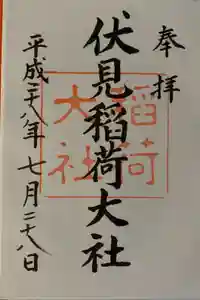 奉拝
伏見稲荷大社
稲荷
大社
平成二八年七月二八日